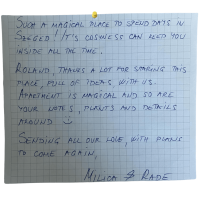 SUCH A MAGICAL PLACE TO SPEND DAYS IN
SZEGED! IT'S COSINESS CAN KEEP YOU
INSIDE ALL THE TIME.
ROLAND, THANKS A LOT FOR SHARING THIS
PLACE, FULL OF IDEAS WITH US.
APARTMENT IS MAGICAL AND SO ARE
YOUR NOTES, PLANTS AND DETAILS
AROUND
SENDING ALL OUR LOVE, WITH PLANS
TO COME AGAIN,
MILICA & RADE